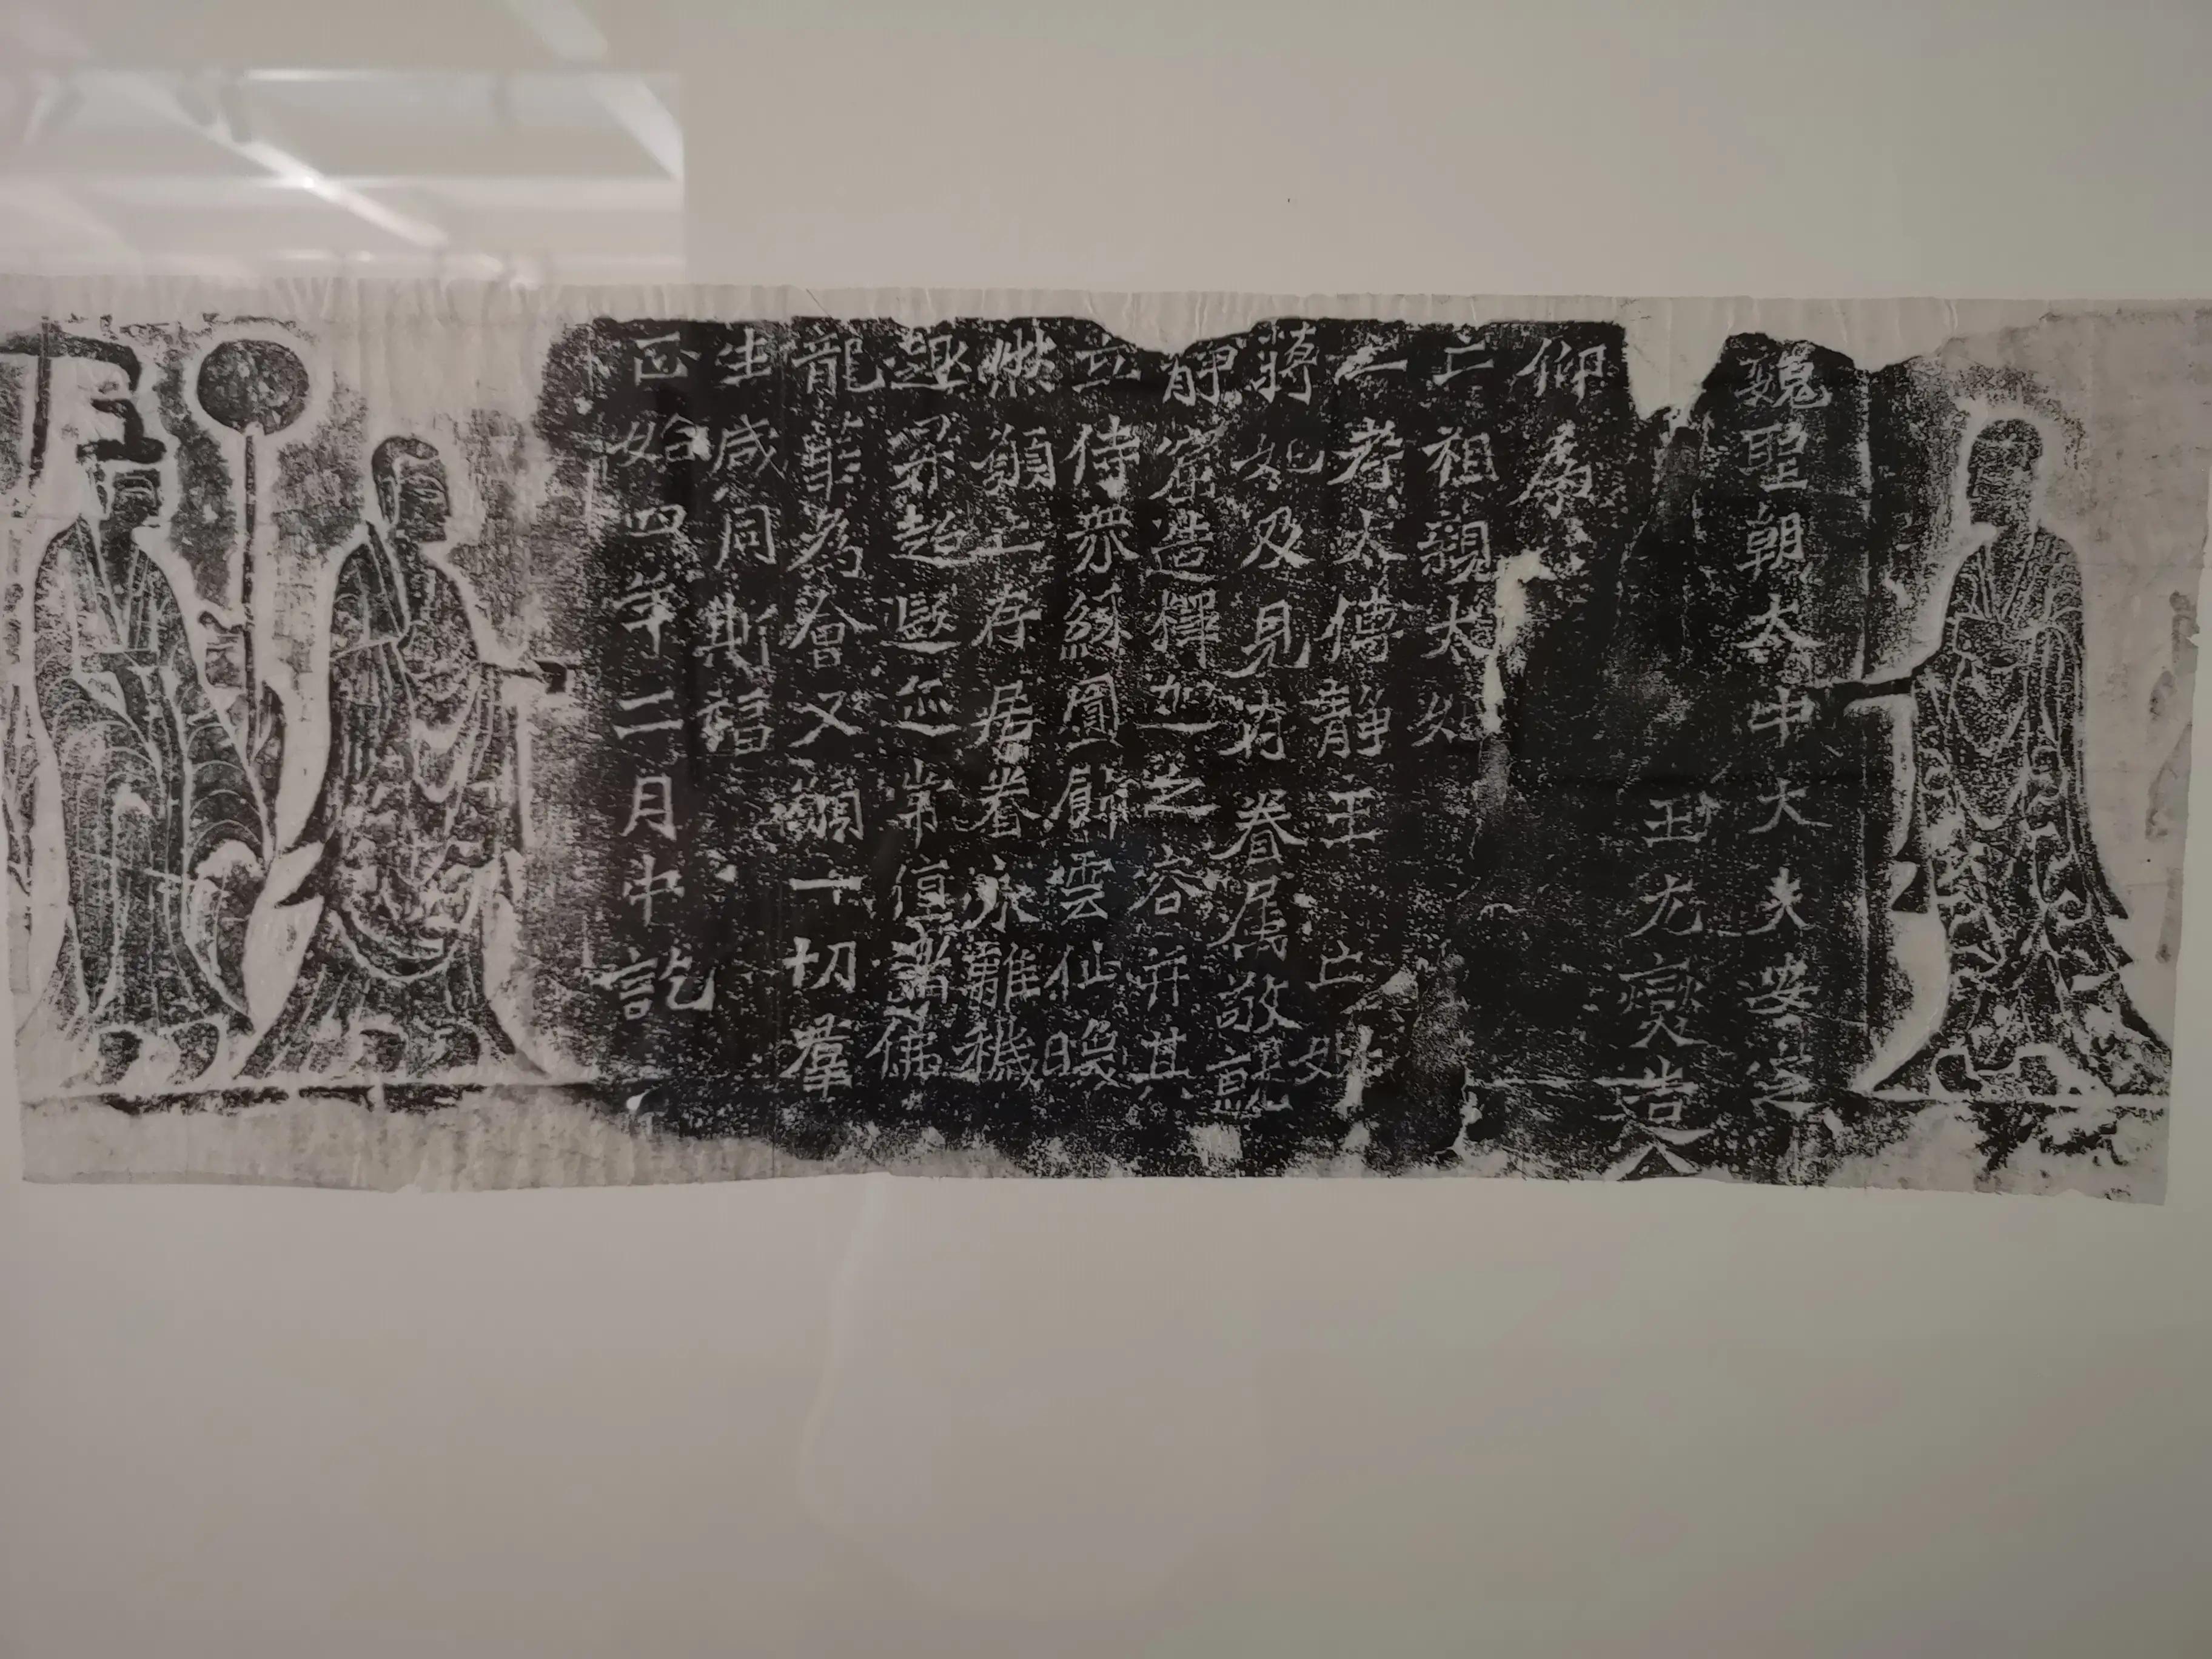 魏聖朝太中大夫安定
王元燮造
仰為
亡祖親太妃
亡考太傅靜王亡妣
蔣妃及見存眷属敬就
靜窟造釋迦之容并其
立侍眾綵圓飾雲仙煥
然願亡存居眷永離穢
趣昇超遐迹常值諸佛
龍華為會又願一切羣
生咸同斯福
正始四年二月中訖